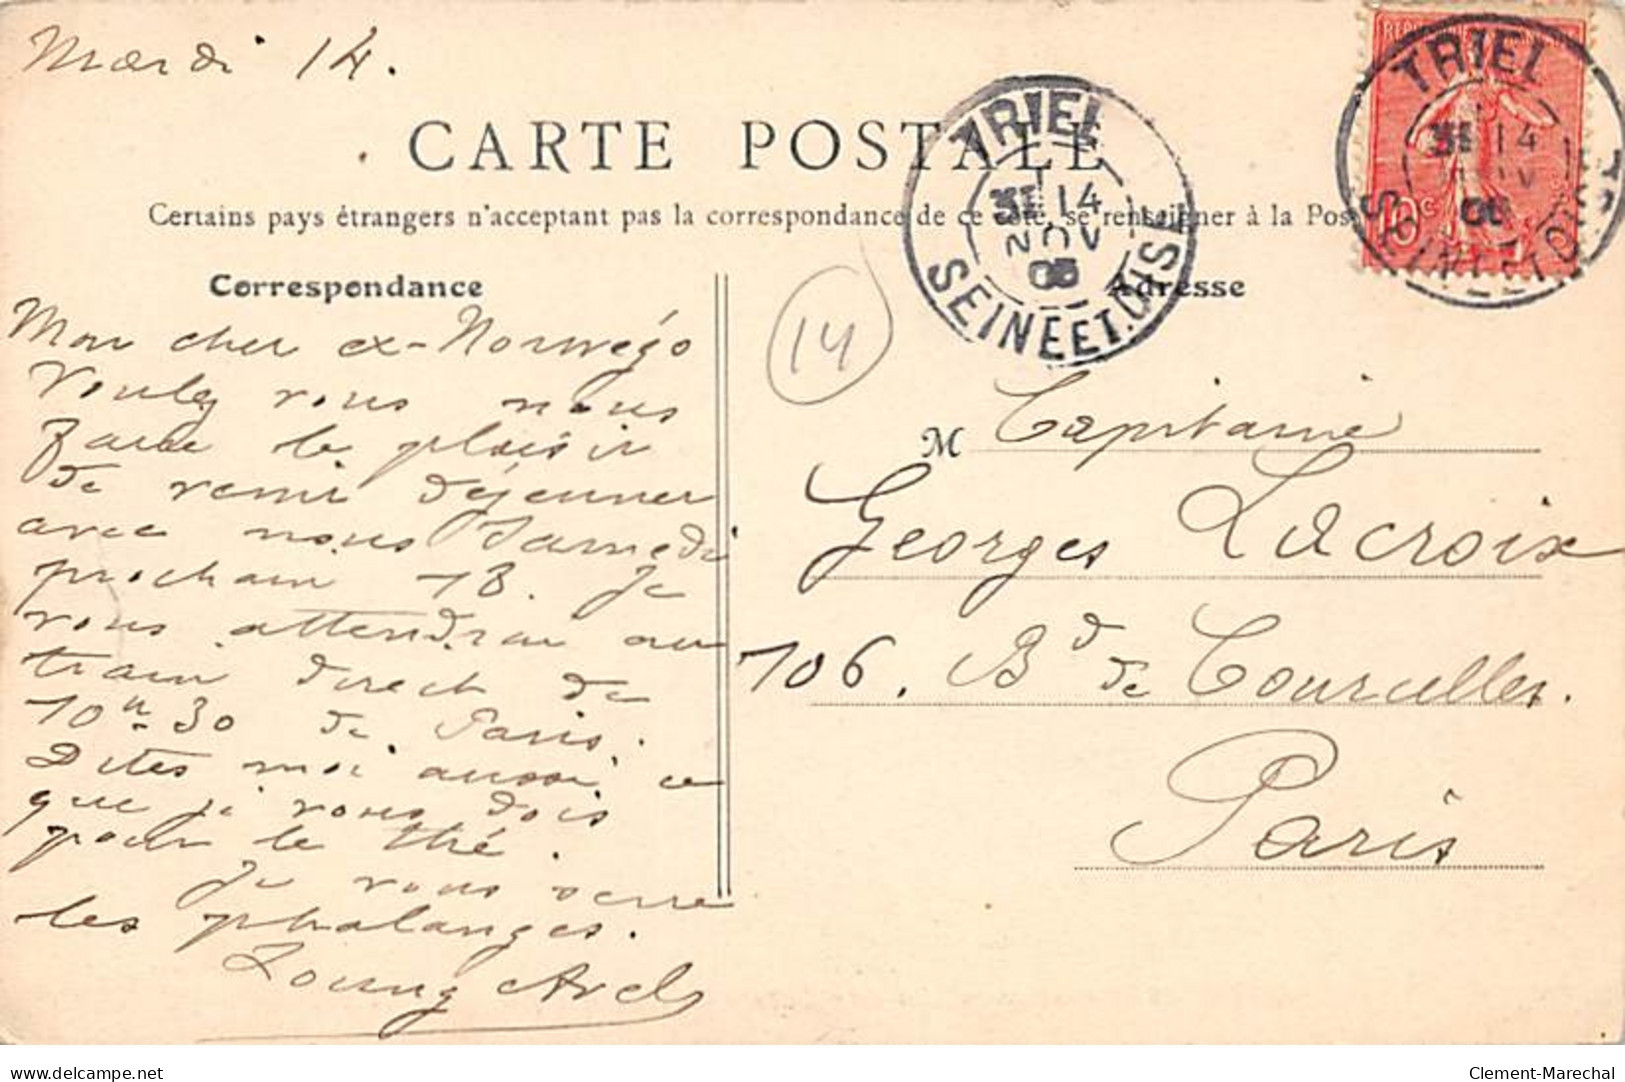 Mardi 14.
CARTE POSTALE
Certains pays étrangers n'acceptant pas la correspondance de ce côté, se renseigner à la Pos
Correspondance
Adresse
Mon cher ex-Norwégo
Voulez vous nous
faire le plaisir
de venir déjeuner
avec nous Samedi
prochain 18. Je
vous attendrai au
train direct de
10h 30 de Paris.
Dites moi aussi ce
que je vous dois
pour le thé.
Je vous serre
les phalanges.
14
TRIEL
14
NOV
05
SEINE ET OISE
10c
TRIEL
14
SEINE ET OISE
M Capitaine
Georges Lacroix
106. Bd de Courcelles.
Paris
delcampe.net
Clement-Marechal